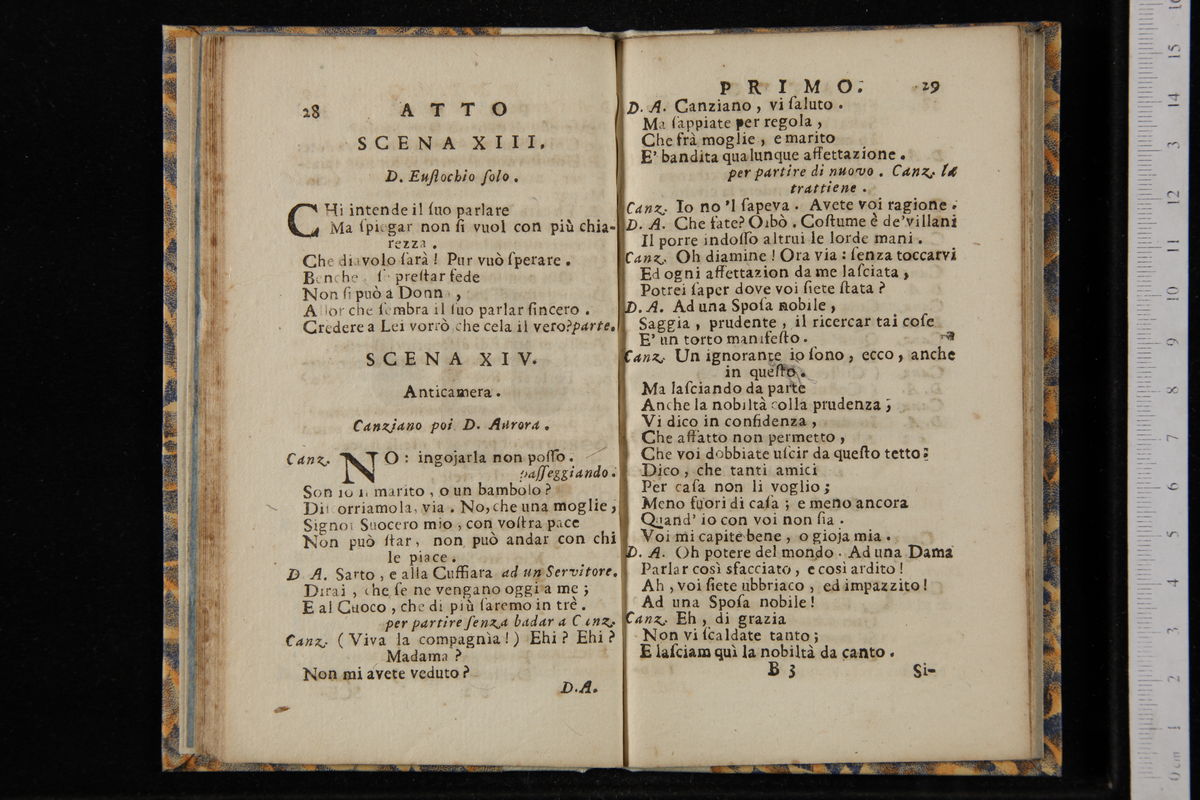 28 ATTO
SCENA XIII.
D. Euſtochio ſolo.
CHi intende il ſuo parlare
Ma ſpiegar non ſi vuol con più chia-
rezza.
Che diavolo ſarà! Pur vuò ſperare.
Benche ſe preſtar fede
Non ſi può a Donna,
Allor che ſembra il ſuo parlar ſincero.
Credere a Lei vorrò che cela il vero? parte.
SCENA XIV.
Anticamera.
Canziano poi D. Aurora.
Canz. NO: ingojarla non poſſo.
paſſeggiando.
Son io il marito, o un bambolo?
Diſcorriamola, via. No, che una moglie,
Signor Suocero mio, con voſtra pace
Non può ſtar, non può andar con chi
le piace.
D A. Sarto, e alla Cuffiara ad un Servitore.
Dirai, che ſe ne vengano oggi a me;
E al Cuoco, che di più ſaremo in trè.
per partire ſenza badar a Canz.
Canz. (Viva la compagnia!) Ehi? Ehi?
Madama?
Non mi avete veduto?
D.A.
PRIMO. 29
D. A. Canziano, vi ſaluto.
Ma ſappiate per regola,
Che frà moglie, e marito
E' bandita qualunque affettazione.
per partire di nuovo. Canz. la
trattiene.
Canz. Io no'l ſapeva. Avete voi ragione.
D. A. Che fate? Oibò. Coſtume è de' villani
Il porre indoſſo altrui le lorde mani.
Canz. Oh diamine! Ora via: ſenza toccarvi
Ed ogni affettazion da me laſciata,
Potrei ſaper dove voi ſiete ſtata?
D. A. Ad una Spoſa nobile,
Saggia, prudente, il ricercar tai coſe
E' un torto manifeſto.
Canz. Un ignorante io ſono, ecco, anche
in queſto.
Ma laſciando da parte
Anche la nobiltà colla prudenza;
Vi dico in confidenza,
Che affatto non permetto,
Che voi dobbiate uſcir da queſto tetto:
Dico, che tanti amici
Per caſa non li voglio;
Meno fuori di caſa; e meno ancora
Quand' io con voi non ſia.
Voi mi capite bene, o gioja mia.
D. A. Oh potere del mondo. Ad una Dama
Parlar così sfacciato, e così ardito!
Ah, voi ſiete ubbriaco, ed impazzito!
Ad una Spoſa nobile!
Canz. Eh, di grazia
Non vi ſcaldate tanto;
E laſciam quì la nobiltà da canto.
B 3 Si-